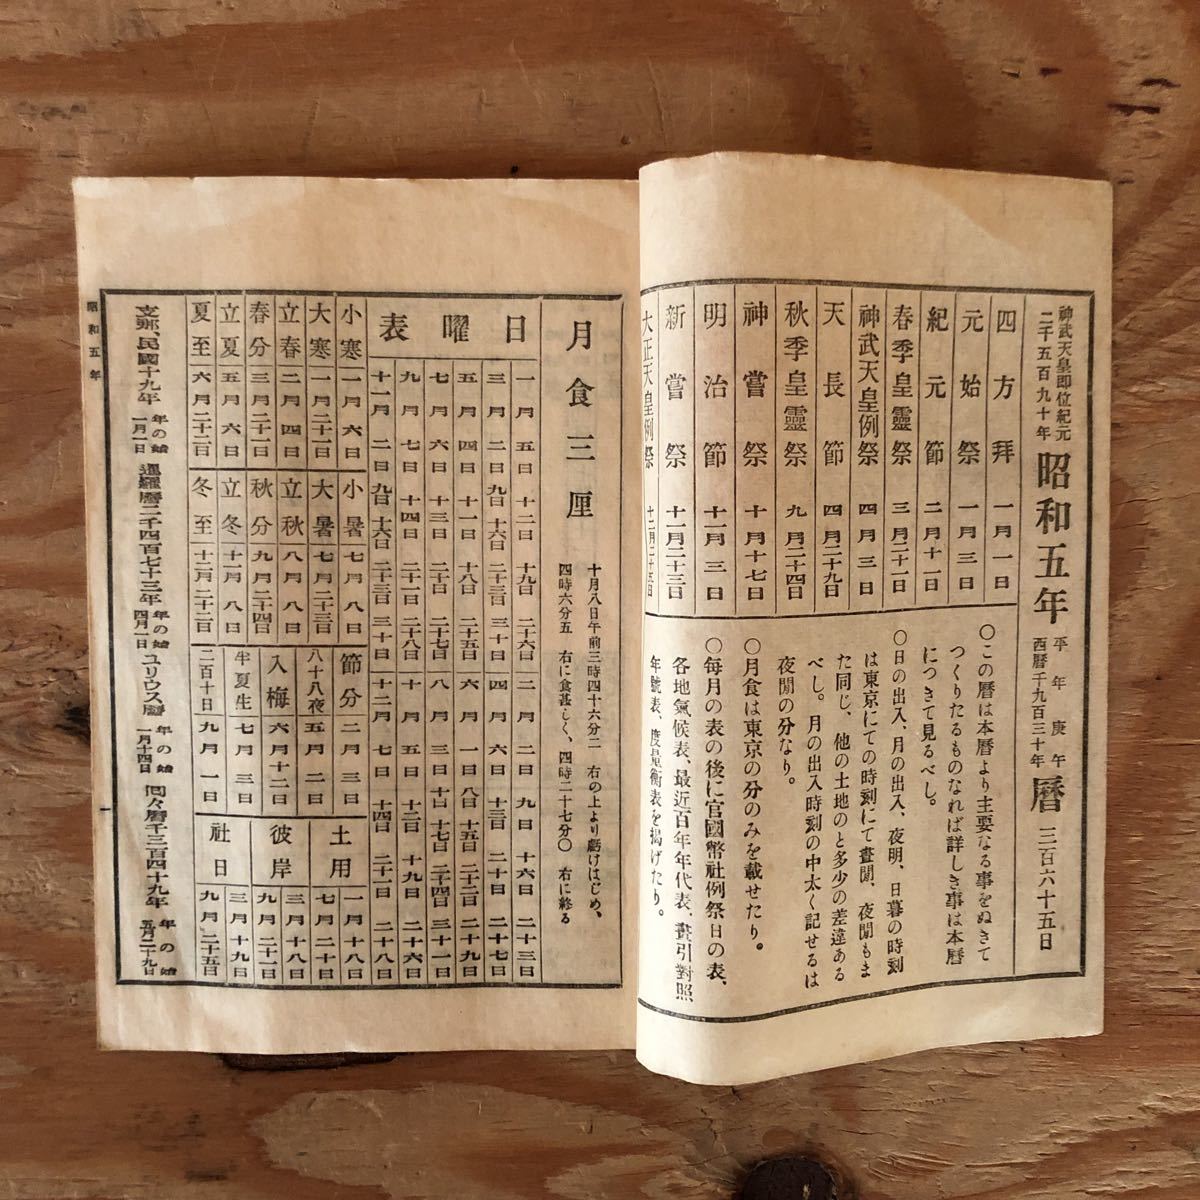 神武天皇即位紀元
二千五百九十年
昭和五年
平年 庚午
西暦千九百三十年
暦
三百六十五日
四方拜 一月一日
元始祭 一月三日
紀元節 二月十一日
春季皇靈祭 三月二十一日
神武天皇例祭 四月三日
天長節 四月二十九日
秋季皇靈祭 九月二十四日
神嘗祭 十月十七日
明治節 十一月三日
新嘗祭 十一月二十三日
大正天皇例祭 十二月二十五日
○この暦は本暦より主要なる事をぬきて
つくりたるものなれば詳しき事は本暦
につきて見るべし。
○日の出入、月の出入、夜明、日暮の時刻
は東京にての時刻にて晝間、夜間もま
た同じ、他の土地のと多少の差違ある
べし。月の出入時刻の中太く記せるは
夜間の分なり。
○月食は東京の分のみを載せたり。
○每月の表の後に官國幣社例祭日の表、
各地氣候表、最近百年年代表、晝引對照
年號表、度量衡表を揭げたり。
月食三厘
十月八日午前三時四十六分二 右の上より虧けはじめ、
四時六分五 右に食甚しく、四時二十七分〇 右に終る
日曜表
一月 五日 十二日 十九日 二十六日 二月 二日 九日 十六日 二十三日
三月 二日 九日 十六日 二十三日 三十日 四月 六日 十三日 二十日 二十七日
五月 四日 十一日 十八日 二十五日 六月 一日 八日 十五日 二十二日 二十九日
七月 六日 十三日 二十日 二十七日 八月 三日 十日 十七日 二十四日 三十一日
九月 七日 十四日 二十一日 二十八日 十月 五日 十二日 十九日 二十六日
十一月 二日 九日 十六日 二十三日 三十日 十二月 七日 十四日 二十一日 二十八日
小寒 一月六日
大寒 一月二十一日
立春 二月四日
春分 三月二十一日
立夏 五月六日
夏至 六月二十二日
小暑 七月八日
大暑 七月二十三日
立秋 八月八日
秋分 九月二十四日
立冬 十一月八日
冬至 十二月二十二日
節分 二月三日
八十八夜 五月二日
入梅 六月十二日
半夏生 七月三日
二百十日 九月一日
土用 一月十八日 七月二十日
彼岸 三月十八日 九月二十一日
社日 三月十九日 九月二十五日
支那、民國十九年 年の始 一月一日 暹羅暦二千四百七十三年 年の始 四月一日 ユリウス暦 年の始 一月十四日 囘々暦千三百四十九年 年の始 五月二十九日
昭和五年